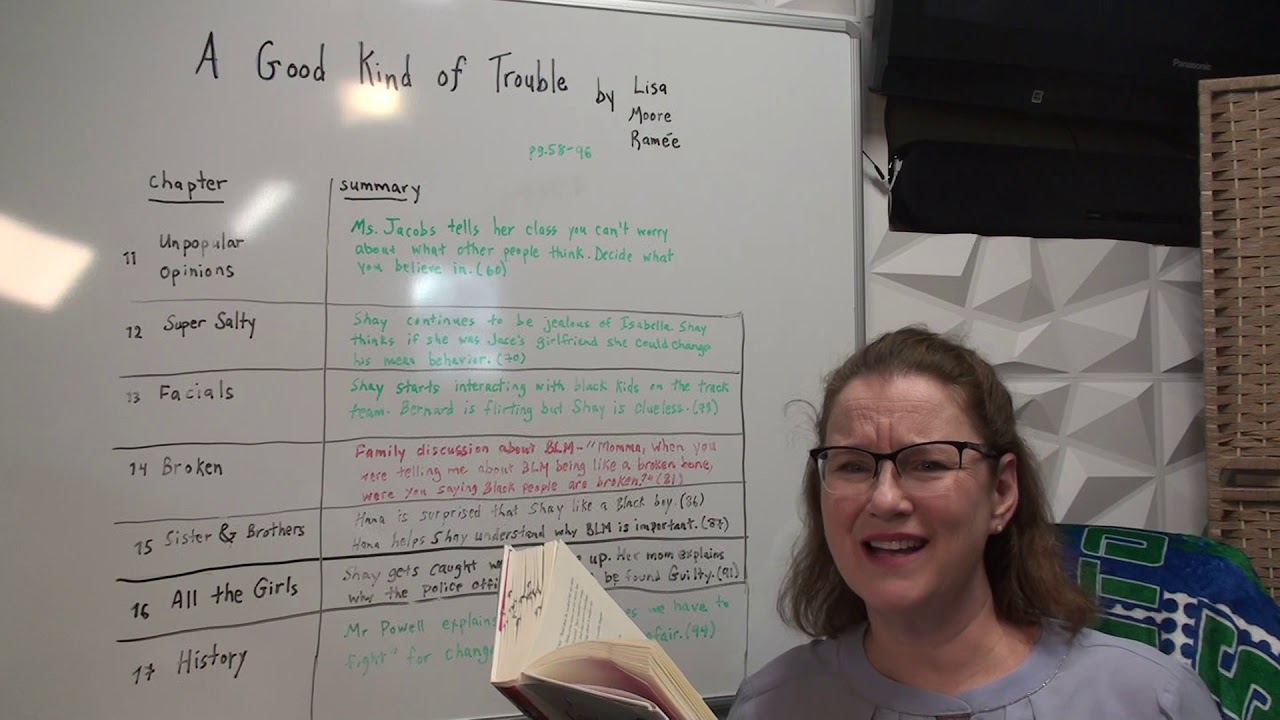 A Good Kind of Trouble by Lisa
Moore
Ramée
pg.58-96
Panasonic
chapter
summary
11 Unpopular
opinions
Ms. Jacobs tells her class you can't worry
about what other people think. Decide what
you believe in. (60)
12 Super Salty
Shay continues to be jealous of Isabella. Shay
thinks if she was Jace's girlfriend she could change
his mean behavior. (70)
13 Facials
Shay starts interacting with black kids on the track
team. Bernard is flirting but Shay is clueless. (75)
14 Broken
Family discussion about BLM-"Momma, when you
were telling me about BLM being like a broken bone,
were you saying Black people are broken?" (81)
15 Sister & Brothers
Hana is surprised that Shay like a Black boy. (86)
Hana helps Shay understand why BLM is important. (87)
16 All the Girls
Shay gets caught up. Her mom explains
why the police be found Guilty. (91)
17 History
Mr Powell explains we have to
fight" for change (94)